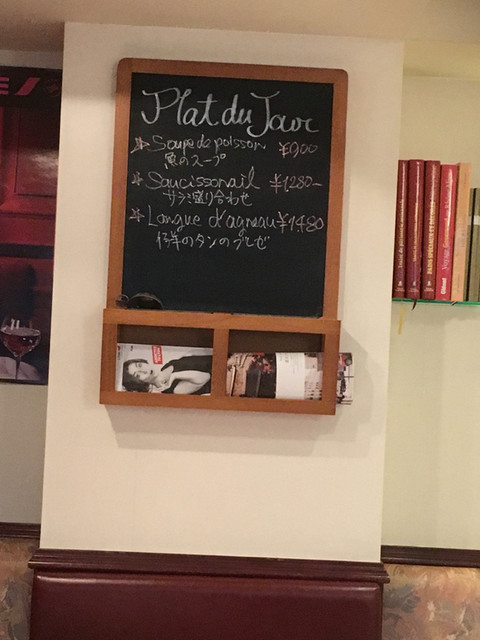 Plat du Jour
☆ Soupe de poisson ¥900
魚のスープ
☆ Saucissonail ¥1280-
サラミ盛り合わせ
☆ Langue d'agneau ¥1480
仔羊のタンのブレゼ